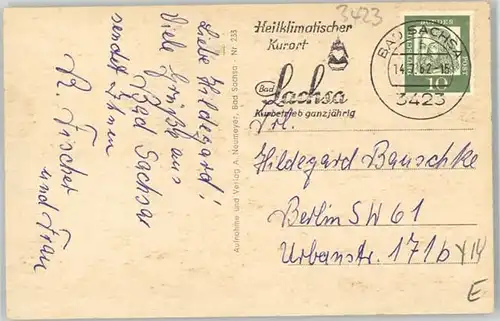 Liebe Hildegard!
Viele Grüße aus
Bad Sachsa
sendet Ihnen
R. Fischer
und Frau
Aufnahme und Verlag A. Neumeyer, Bad Sachsa - Nr 233
3423
Heilklimatischer
Kurort
Bad
Sachsa
Kurbetrieb ganzjährig
BAD SACHSA
62
3423
DEUTSCHE BUNDESPOST
10
Frl.
Hildegard Bauschke
Berlin SW 61
Urbanstr. 171b
E.